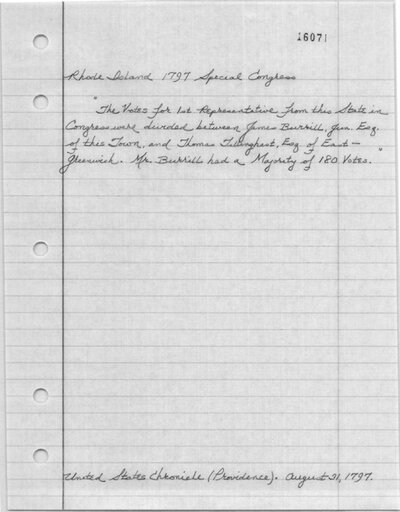 16071
Rhode Island 1797 Special Congress
"The Votes for 1st Representative from this State in
Congress were divided between James Burrill, Jun. Esq.
of this Town, and Thomas Tillinghast, Esq. of East-
Greenwich. Mr. Burrill had a Majority of 180 Votes."
United States Chronicle (Providence). August 31, 1797.